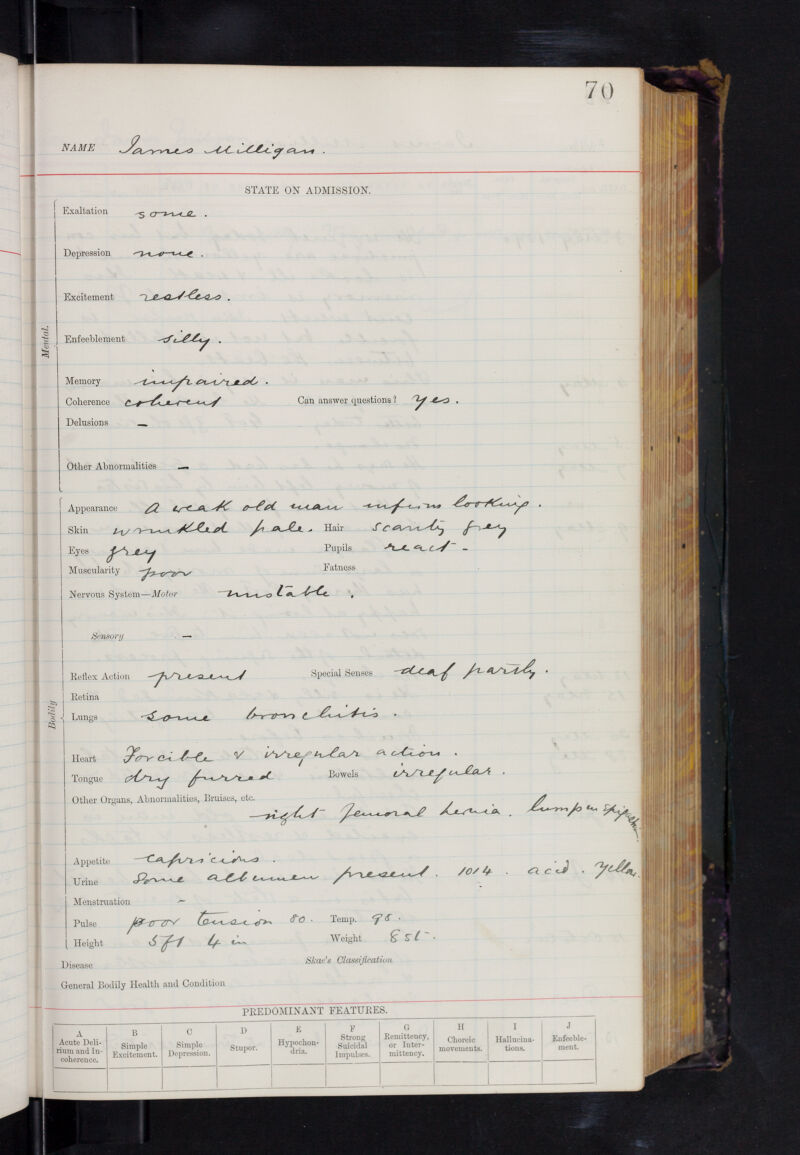 70
NAME James Milligan.
STATE ON ADMISSION.
Mental.
Exaltation some.
Depression none.
Excitement restless.
Enfeeblement silly.
Memory impaired.
Coherence coherent Can answer questions? yes.
Delusions —
Other Abnormalities —
Bodily
Appearance A weak old man infirm looking.
Skin wrinkled pale. Hair scanty grey
Eyes grey Pupils react -
Muscularity poor Fatness
Nervous System—Motor unstable.
Sensory —
Reflex Action present Special Senses deaf partly.
Retina
Lungs some bronchitis.
Heart Forcible & irregular action.
Tongue dry furred Bowels irregular.
Other Organs, Abnormalities, Bruises, etc.
right femoral hernia. lump in
Appetite capricious.
Urine Some albumen present. 1014. acid. yellow.
Menstruation -
Pulse poor tension 80. Temp. 98.
Height 5 ft 4 in Weight 8 st.
Disease Skae's Classification
General Bodily Health and Condition
PREDOMINANT FEATURES.
A B C D E F G H I J
Acute Delirium and Incoherence. Simple Excitement. Simple Depression. Stupor. Hypochondria. Strong Suicidal Impulses. Remittency, or Intermittency. Choreic movements. Hallucinations. Enfeeblement.